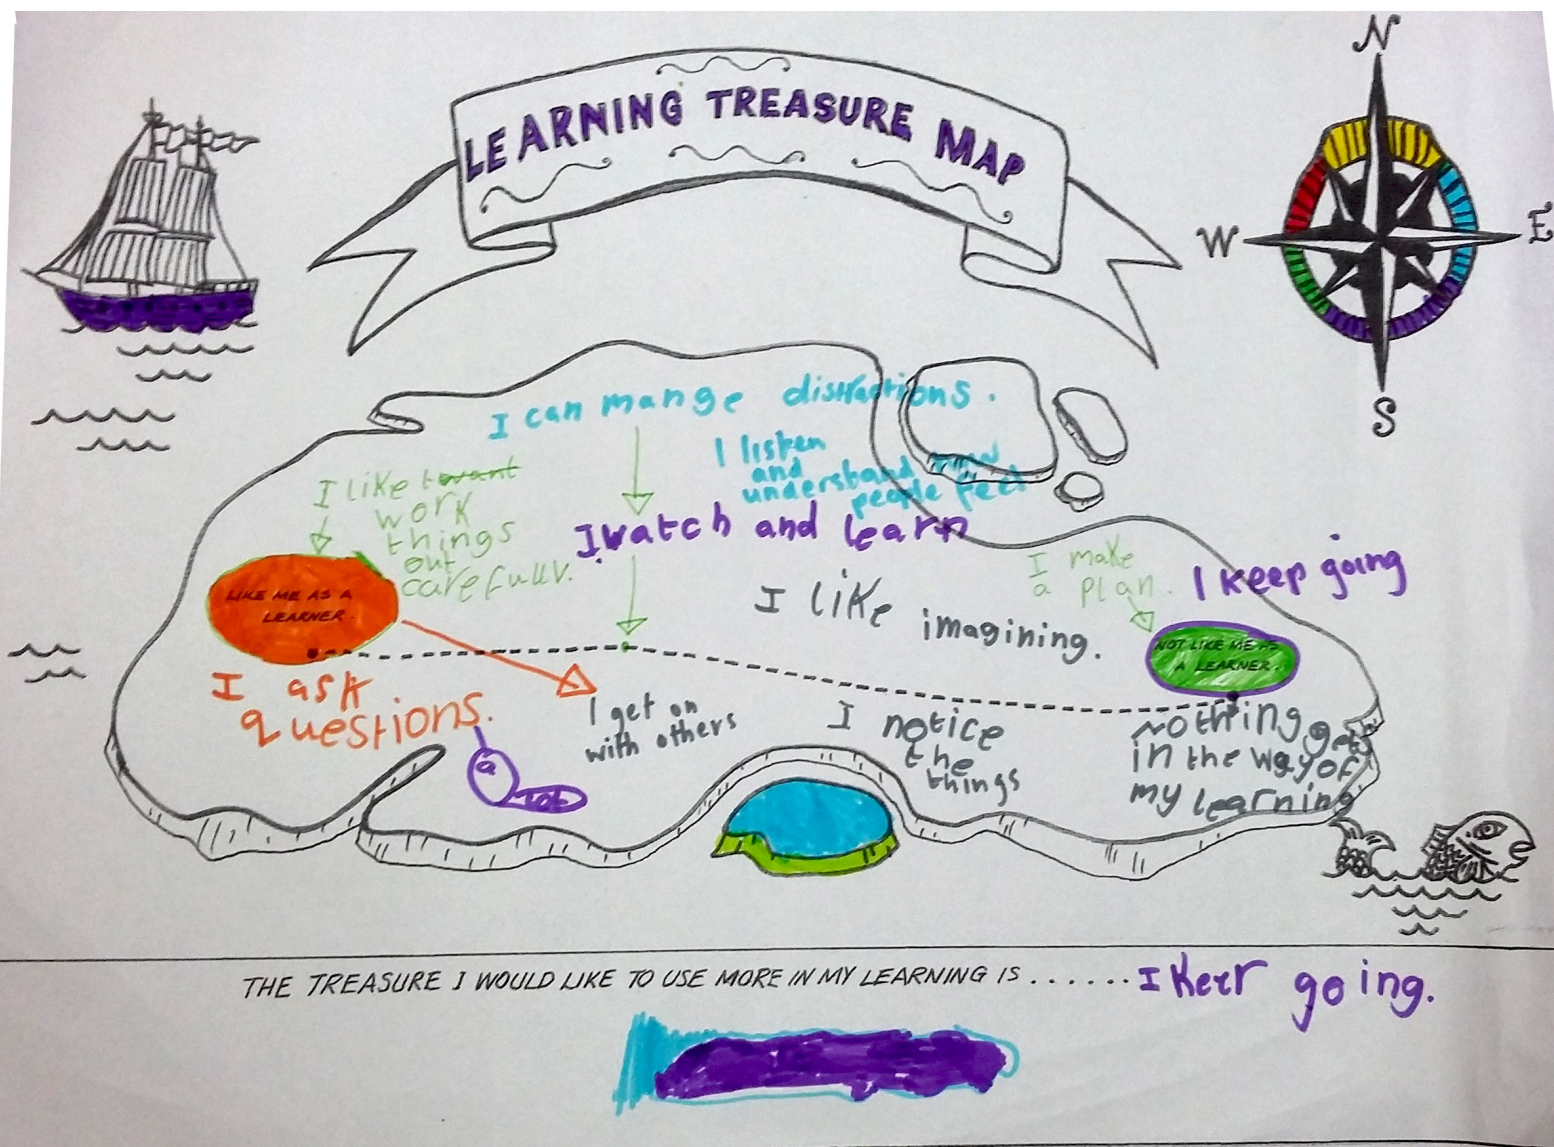 N
LEARNING TREASURE MAP
W
E
S
I can mange distractions.
I listen
and
understand how
people feel
I like to want
work
things
out
carefully.
I watch and learn
I make
a plan.
I keep going
LIKE ME AS A
LEARNER.
I like imagining.
NOT LIKE ME AS
A LEARNER.
I ask
questions.
a
lot
I get on
with others
I notice
the
things
Nothing gets
in the way of
my learning
THE TREASURE I WOULD LIKE TO USE MORE IN MY LEARNING IS ...... I Keep going.